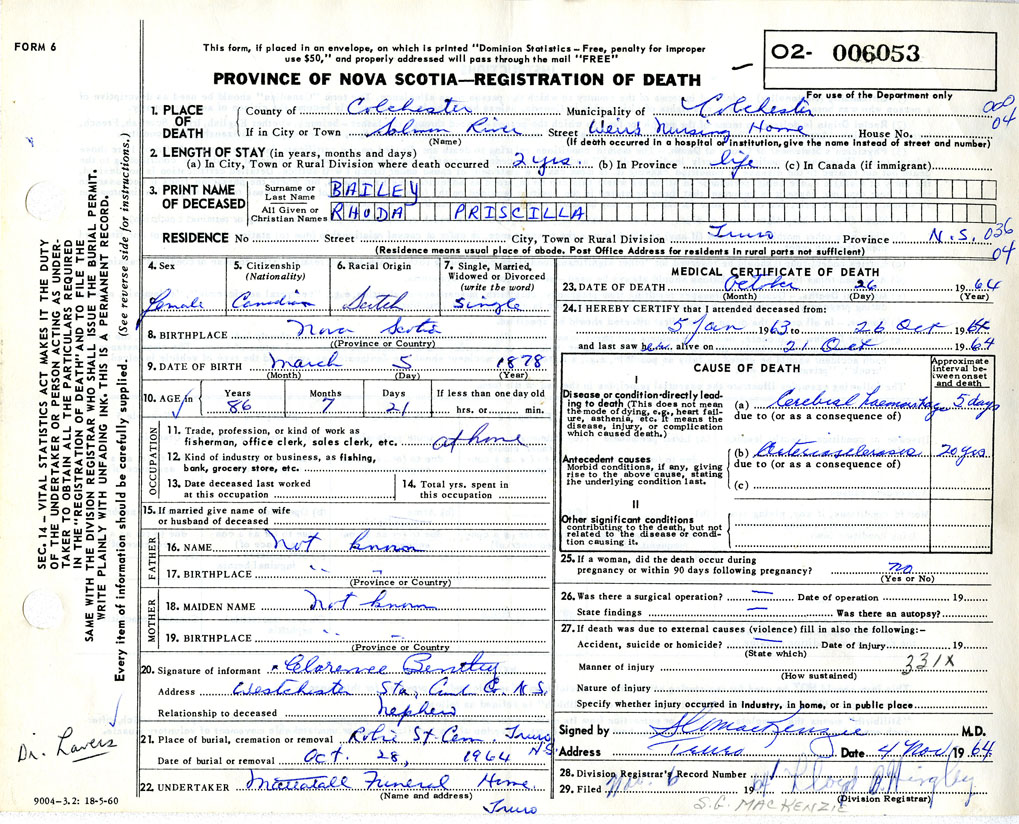 FORM 6
This form, if placed in an envelope, on which is printed "Dominion Statistics – Free, penalty for improper
use $50," and properly addressed will pass through the mail "FREE"
PROVINCE OF NOVA SCOTIA—REGISTRATION OF DEATH
02- 006053
For use of the Department only
000
04
1. PLACE OF DEATH
County of Colchester Municipality of Colchester
If in City or Town Salmon River Street Weirs Nursing Home House No.
(Name) (If death occurred in a hospital or institution, give the name instead of street and number)
2. LENGTH OF STAY (in years, months and days)
(a) In City, Town or Rural Division where death occurred 2 yrs. (b) In Province life (c) In Canada (if immigrant)
3. PRINT NAME OF DECEASED
Surname or Last Name BAILEY
All Given or Christian Names RHODA PRISCILLA
RESIDENCE No Street City, Town or Rural Division Truro Province N.S. 036
04
(Residence means usual place of abode. Post Office Address for residents in rural parts not sufficient)
4. Sex female
5. Citizenship (Nationality) Canadian
6. Racial Origin Scotch
7. Single, Married, Widowed or Divorced (write the word) Single
8. BIRTHPLACE Nova Scotia
(Province or Country)
9. DATE OF BIRTH March 5 1878
(Month) (Day) (Year)
10. AGE in Years 86 Months 7 Days 21 If less than one day old hrs. or min.
OCCUPATION
11. Trade, profession, or kind of work as
fisherman, office clerk, sales clerk, etc. at home
12. Kind of industry or business, as fishing,
bank, grocery store, etc.
13. Date deceased last worked
at this occupation
14. Total yrs. spent in
this occupation
15. If married give name of wife
or husband of deceased
FATHER
16. NAME Not known
17. BIRTHPLACE " "
(Province or Country)
MOTHER
18. MAIDEN NAME Not known
19. BIRTHPLACE " "
(Province or Country)
20. Signature of informant Clarence Bentley
Address Westchester Sta, Cumb Co. N.S.
Relationship to deceased Nephew
21. Place of burial, cremation or removal Robie St. Cem Truro N.S.
Date of burial or removal Oct. 28, 1964
22. UNDERTAKER Mattatall Funeral Home
(Name and address) Truro
MEDICAL CERTIFICATE OF DEATH
23. DATE OF DEATH October 26 1964
(Month) (Day) (Year)
24. I HEREBY CERTIFY that I attended deceased from:
5 Jan 1963 to 26 Oct 1964
and last saw her alive on 21 Oct 1964
CAUSE OF DEATH
Approximate interval between onset and death
I
Disease or condition directly leading to death (This does not mean
the mode of dying, e.g., heart failure, asthenia, etc. It means the
disease, injury, or complication
which caused death.)
(a) Cerebral haemorrhage 5 days
due to (or as a consequence of)
Antecedent causes
Morbid conditions, if any, giving
rise to the above cause, stating
the underlying condition last.
(b) Arteriosclerosis 20 yrs
due to (or as a consequence of)
(c)
II
Other significant conditions
contributing to the death, but not
related to the disease or condition causing it.
25. If a woman, did the death occur during
pregnancy or within 90 days following pregnancy? no
(Yes or No)
26. Was there a surgical operation? — Date of operation 19
State findings — Was there an autopsy?
27. If death was due to external causes (violence) fill in also the following:–
Accident, suicide or homicide? — Date of injury 19
(State which)
Manner of injury 331X
(How sustained)
Nature of injury
Specify whether injury occurred in Industry, in home, or in public place
Signed by SGMacKenzie M.D.
Address Truro Date 4 Nov 1964
28. Division Registrar's Record Number
29. Filed Nov. 6 19 Lloyd Hingley
(Division Registrar)
S.G. MACKENZIE
SEC. 14 – VITAL STATISTICS ACT MAKES IT THE DUTY
OF THE UNDERTAKER OR PERSON ACTING AS UNDERTAKER TO OBTAIN ALL THE PARTICULARS REQUIRED
IN THE "REGISTRATION OF DEATH" AND TO FILE THE
SAME WITH THE DIVISION REGISTRAR WHO SHALL ISSUE THE BURIAL PERMIT.
WRITE PLAINLY WITH UNFADING INK. THIS IS A PERMANENT RECORD.
Every item of information should be carefully supplied. (See reverse side for instructions.)
Dr. Lavers
9004–3.2: 18-5-60